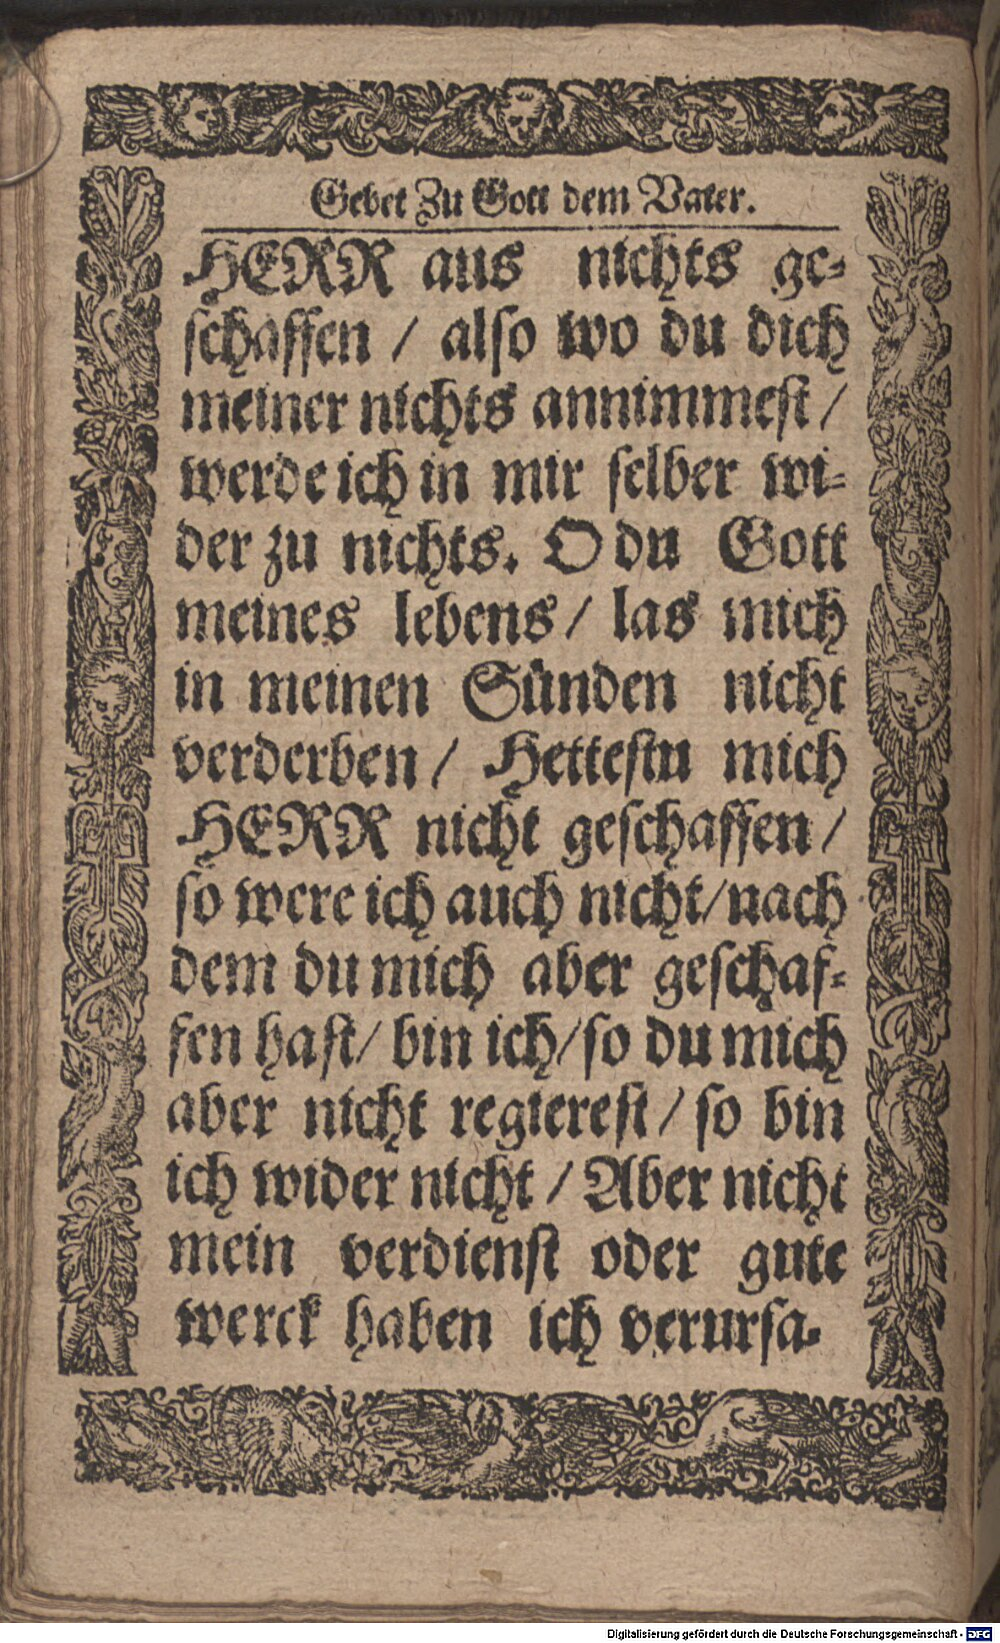 Gebet Zu Gott dem Vater.
HERR aus nichts ge-
schaffen / also wo du dich
meiner nichts annimmest /
werde ich in mir selber wi-
der zu nichts. O du Gott
meines lebens / las mich
in meinen Sünden nicht
verderben / Hettestu mich
HERR nicht geschaffen /
so were ich auch nicht / nach
dem du mich aber geschaf-
fen hast / bin ich / so du mich
aber nicht regierest / so bin
ich wider nicht / Aber nicht
mein verdienst oder gute
werck haben ich verursa-
Digitalisierung gefördert durch die Deutsche Forschungsgemeinschaft - DFG